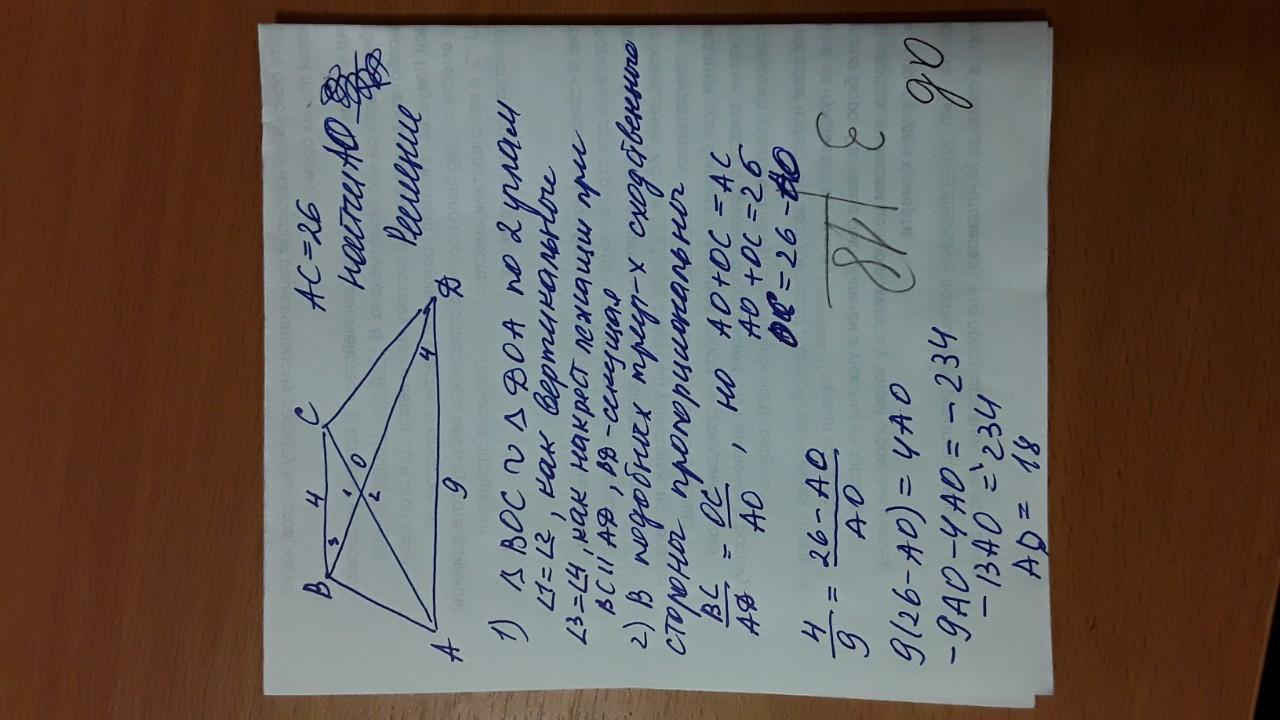 B 4 C
3 1 O
2 4
A 9 D
AC = 26
найти AO
Решение
1) Δ BOC ~ Δ DOA по 2 углам
∠1=∠2, как вертикальные
∠3=∠4, как накрест лежащии при
BC || AD, BD - секущая
2) В подобных треу-х сходственные
стороны пропорциональны
BC/AD = OC/AO, но AO+OC = AC
AO + OC = 26
OC = 26 - AO
4/9 = 26-AO/AO
9(26-AO) = 4AO
-9AO-4AO = -234
-13AO = -234
AO = 18
18 3
до